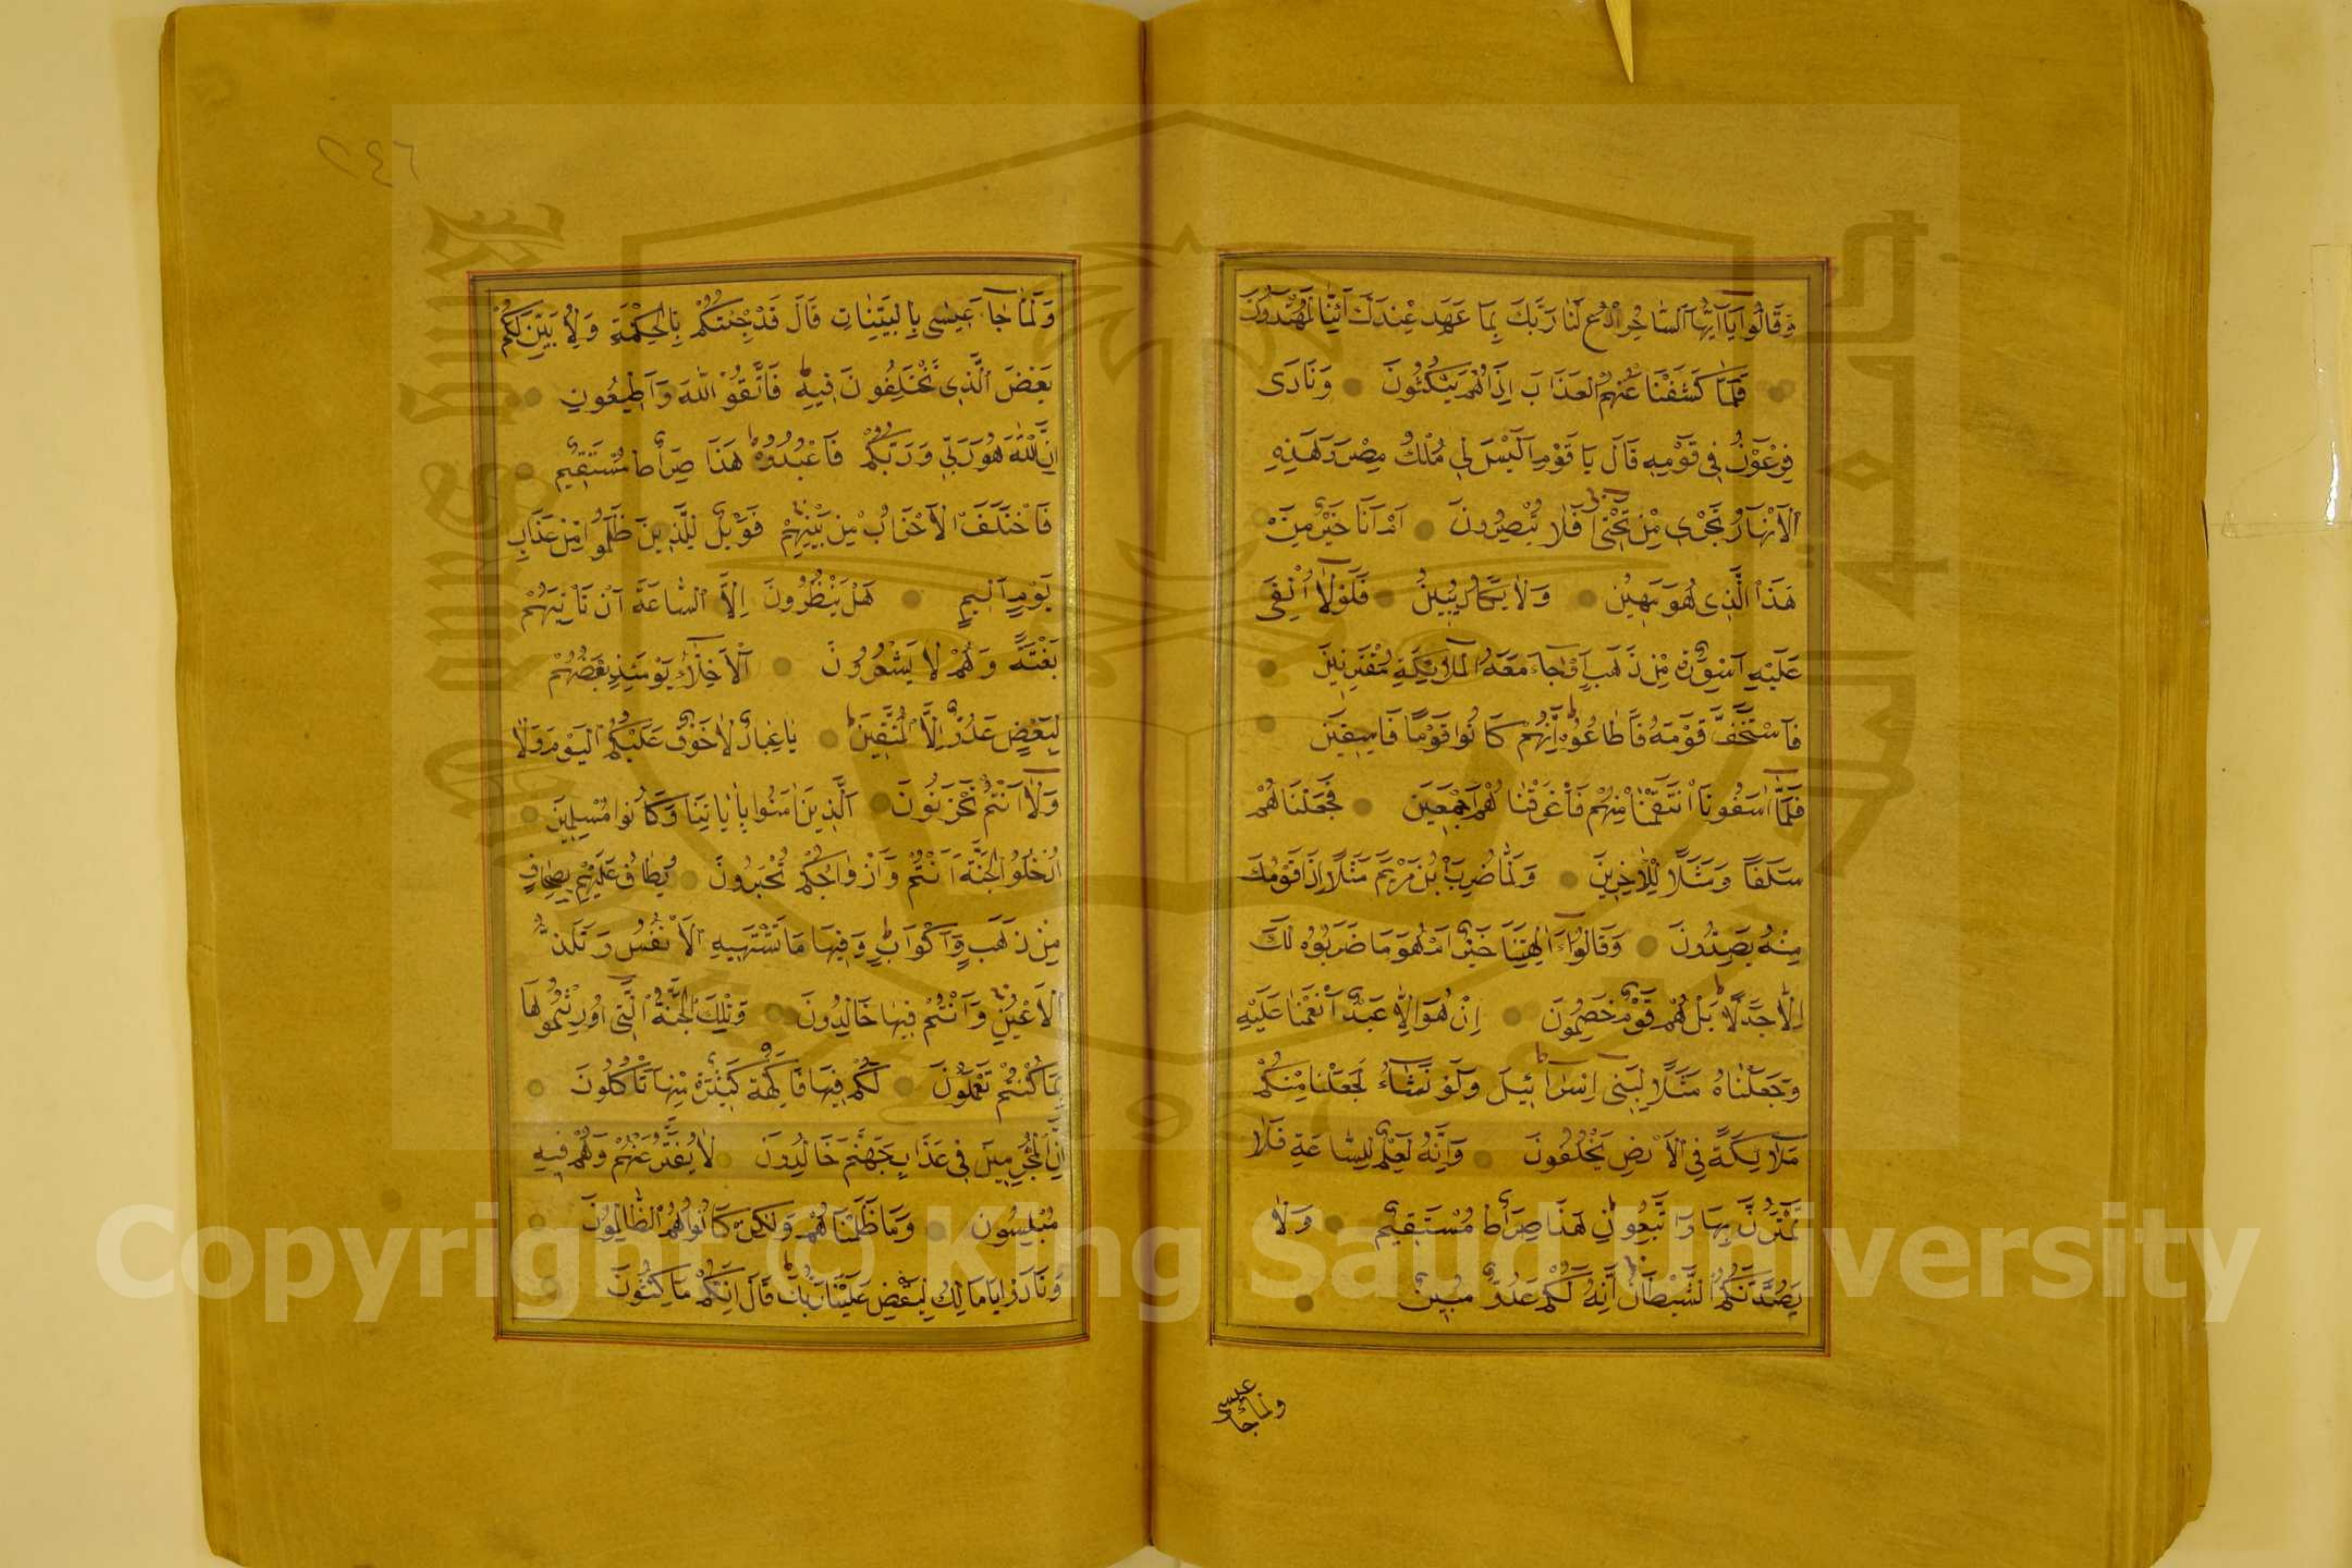 وَقَالُوا يَا اَيُّهَا السَّاحِرُ ادْعُ لَنَا رَبَّكَ بِمَا عَهِدَ عِنْدَكَ اِنَّنَا لَمُهْتَدُونَ
فَلَمَّا كَشَفْنَا عَنْهُمُ الْعَذَابَ اِذَا هُمْ يَنْكُثُونَ وَنَادَى
فِرْعَوْنُ فِي قَوْمِهِ قَالَ يَا قَوْمِ اَلَيْسَ لِي مُلْكُ مِصْرَ وَهَذِهِ
الْاَنْهَارُ تَجْرِي مِنْ تَحْتِي اَفَلَا تُبْصِرُونَ اَمْ اَنَا خَيْرٌ مِنْ
هَذَا الَّذِي هُوَ مَهِينٌ وَلَا يَكَادُ يُبِينُ فَلَوْلَا اُلْقِيَ
عَلَيْهِ اَسْوِرَةٌ مِنْ ذَهَبٍ اَوْ جَاءَ مَعَهُ الْمَلَائِكَةُ مُقْتَرِنِينَ
فَاسْتَخَفَّ قَوْمَهُ فَاَطَاعُوهُ اِنَّهُمْ كَانُوا قَوْمًا فَاسِقِينَ
فَلَمَّا اٰسَفُونَا انْتَقَمْنَا مِنْهُمْ فَاَغْرَقْنَاهُمْ اَجْمَعِينَ فَجَعَلْنَاهُمْ
سَلَفًا وَمَثَلًا لِلْاٰخِرِينَ وَلَمَّا ضُرِبَ ابْنُ مَرْيَمَ مَثَلًا اِذَا قَوْمُكَ
مِنْهُ يَصِدُّونَ وَقَالُوا ءَاٰلِهَتُنَا خَيْرٌ اَمْ هُوَ مَا ضَرَبُوهُ لَكَ
اِلَّا جَدَلًا بَلْ هُمْ قَوْمٌ خَصِمُونَ اِنْ هُوَ اِلَّا عَبْدٌ اَنْعَمْنَا عَلَيْهِ
وَجَعَلْنَاهُ مَثَلًا لِبَنِي اِسْرَائِيلَ وَلَوْ نَشَاءُ لَجَعَلْنَا مِنْكُمْ
مَلَائِكَةً فِي الْاَرْضِ يَخْلُفُونَ وَاِنَّهُ لَعِلْمٌ لِلسَّاعَةِ فَلَا
تَمْتَرُنَّ بِهَا وَاتَّبِعُونِ هَذَا صِرَاطٌ مُسْتَقِيمٌ وَلَا
يَصُدَّنَّكُمُ الشَّيْطَانُ اِنَّهُ لَكُمْ عَدُوٌّ مُبِينٌ
ولما جاء عيسى
٢٤٦
وَلَمَّا جَاءَ عِيسَى بِالْبَيِّنَاتِ قَالَ قَدْ جِئْتُكُمْ بِالْحِكْمَةِ وَلِاُبَيِّنَ لَكُمْ
بَعْضَ الَّذِي تَخْتَلِفُونَ فِيهِ فَاتَّقُوا اللّٰهَ وَاَطِيعُونِ
اِنَّ اللّٰهَ هُوَ رَبِّي وَرَبُّكُمْ فَاعْبُدُوهُ هَذَا صِرَاطٌ مُسْتَقِيمٌ
فَاخْتَلَفَ الْاَحْزَابُ مِنْ بَيْنِهِمْ فَوَيْلٌ لِلَّذِينَ ظَلَمُوا مِنْ عَذَابِ
يَوْمٍ اَلِيمٍ هَلْ يَنْظُرُونَ اِلَّا السَّاعَةَ اَنْ تَاْتِيَهُمْ
بَغْتَةً وَهُمْ لَا يَشْعُرُونَ اَلْاَخِلَّاءُ يَوْمَئِذٍ بَعْضُهُمْ
لِبَعْضٍ عَدُوٌّ اِلَّا الْمُتَّقِينَ يَا عِبَادِ لَا خَوْفٌ عَلَيْكُمُ الْيَوْمَ وَلَا
وَلَا اَنْتُمْ تَحْزَنُونَ اَلَّذِينَ اٰمَنُوا بِاٰيَاتِنَا وَكَانُوا مُسْلِمِينَ
اُدْخُلُوا الْجَنَّةَ اَنْتُمْ وَاَزْوَاجُكُمْ تُحْبَرُونَ يُطَافُ عَلَيْهِمْ بِصِحَافٍ
مِنْ ذَهَبٍ وَاَكْوَابٍ وَفِيهَا مَا تَشْتَهِيهِ الْاَنْفُسُ وَتَلَذُّ
الْاَعْيُنُ وَاَنْتُمْ فِيهَا خَالِدُونَ وَتِلْكَ الْجَنَّةُ الَّتِي اُورِثْتُمُوهَا
بِمَا كُنْتُمْ تَعْمَلُونَ لَكُمْ فِيهَا فَاكِهَةٌ كَثِيرَةٌ مِنْهَا تَاْكُلُونَ
اِنَّ الْمُجْرِمِينَ فِي عَذَابِ جَهَنَّمَ خَالِدُونَ لَا يُفَتَّرُ عَنْهُمْ وَهُمْ فِيهِ
مُبْلِسُونَ وَمَا ظَلَمْنَاهُمْ وَلَكِنْ كَانُوا هُمُ الظَّالِمِينَ
وَنَادَوْا يَا مَالِكُ لِيَقْضِ عَلَيْنَا رَبُّكَ قَالَ اِنَّكُمْ مَاكِثُونَ
Copyright © King Saud University